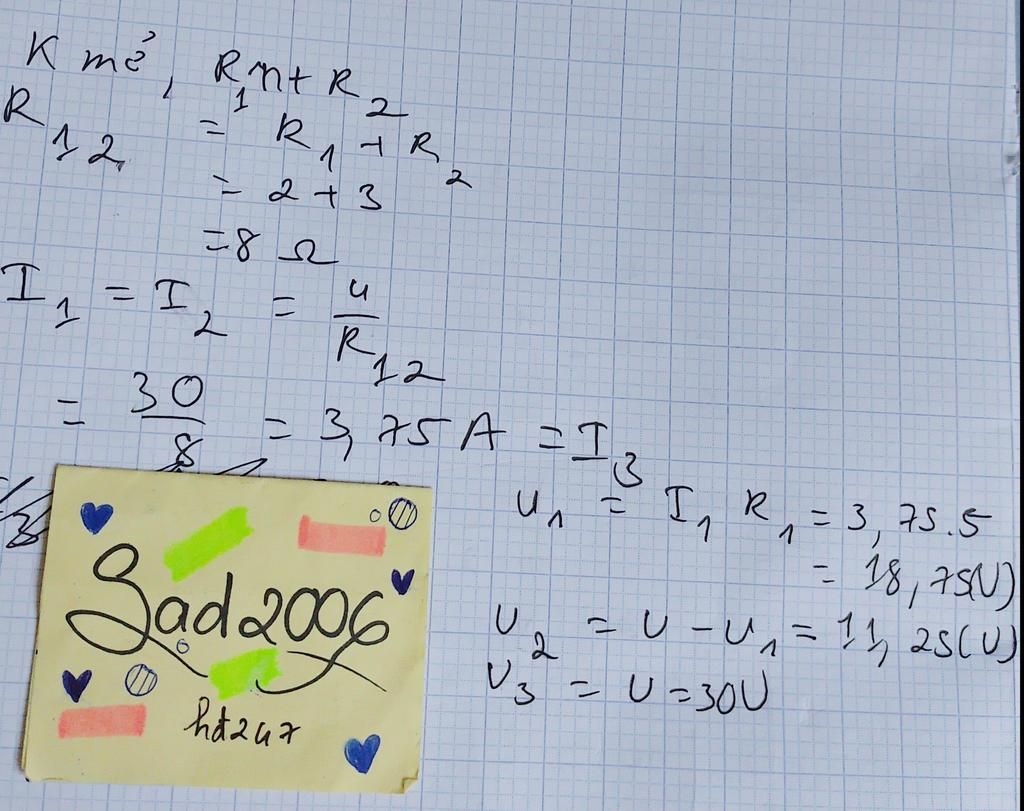 K mở, R1 nt R2
R12 = R1 + R2
= 2 + 3
= 8 Ω
I1 = I2 = u/R12
= 30/8 = 3,75 A = I3
U1 = I1 R1 = 3,75.5
= 18,75(V)
U2 = U - U1 = 11,25(V)
U3 = U = 30V
Sad2006
hdt247